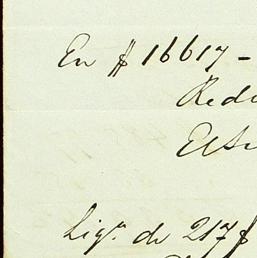 En $ 16617 -
Redu
El Su
Ligª de 217 $